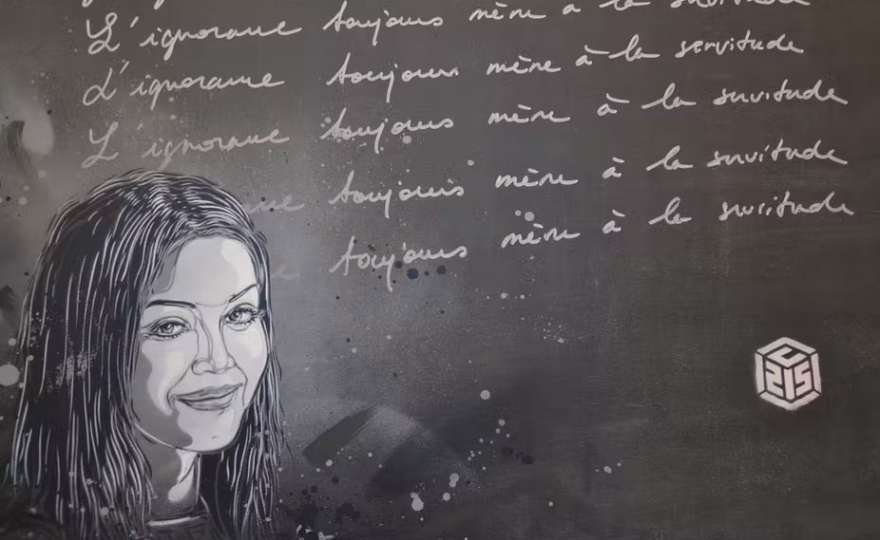 L'ignorance toujours mène à la servitude
L'ignorance toujours mène à la servitude
L'ignorance toujours mène à la servitude
nce toujours mène à la servitude
e toujours mène à la servitude
C215